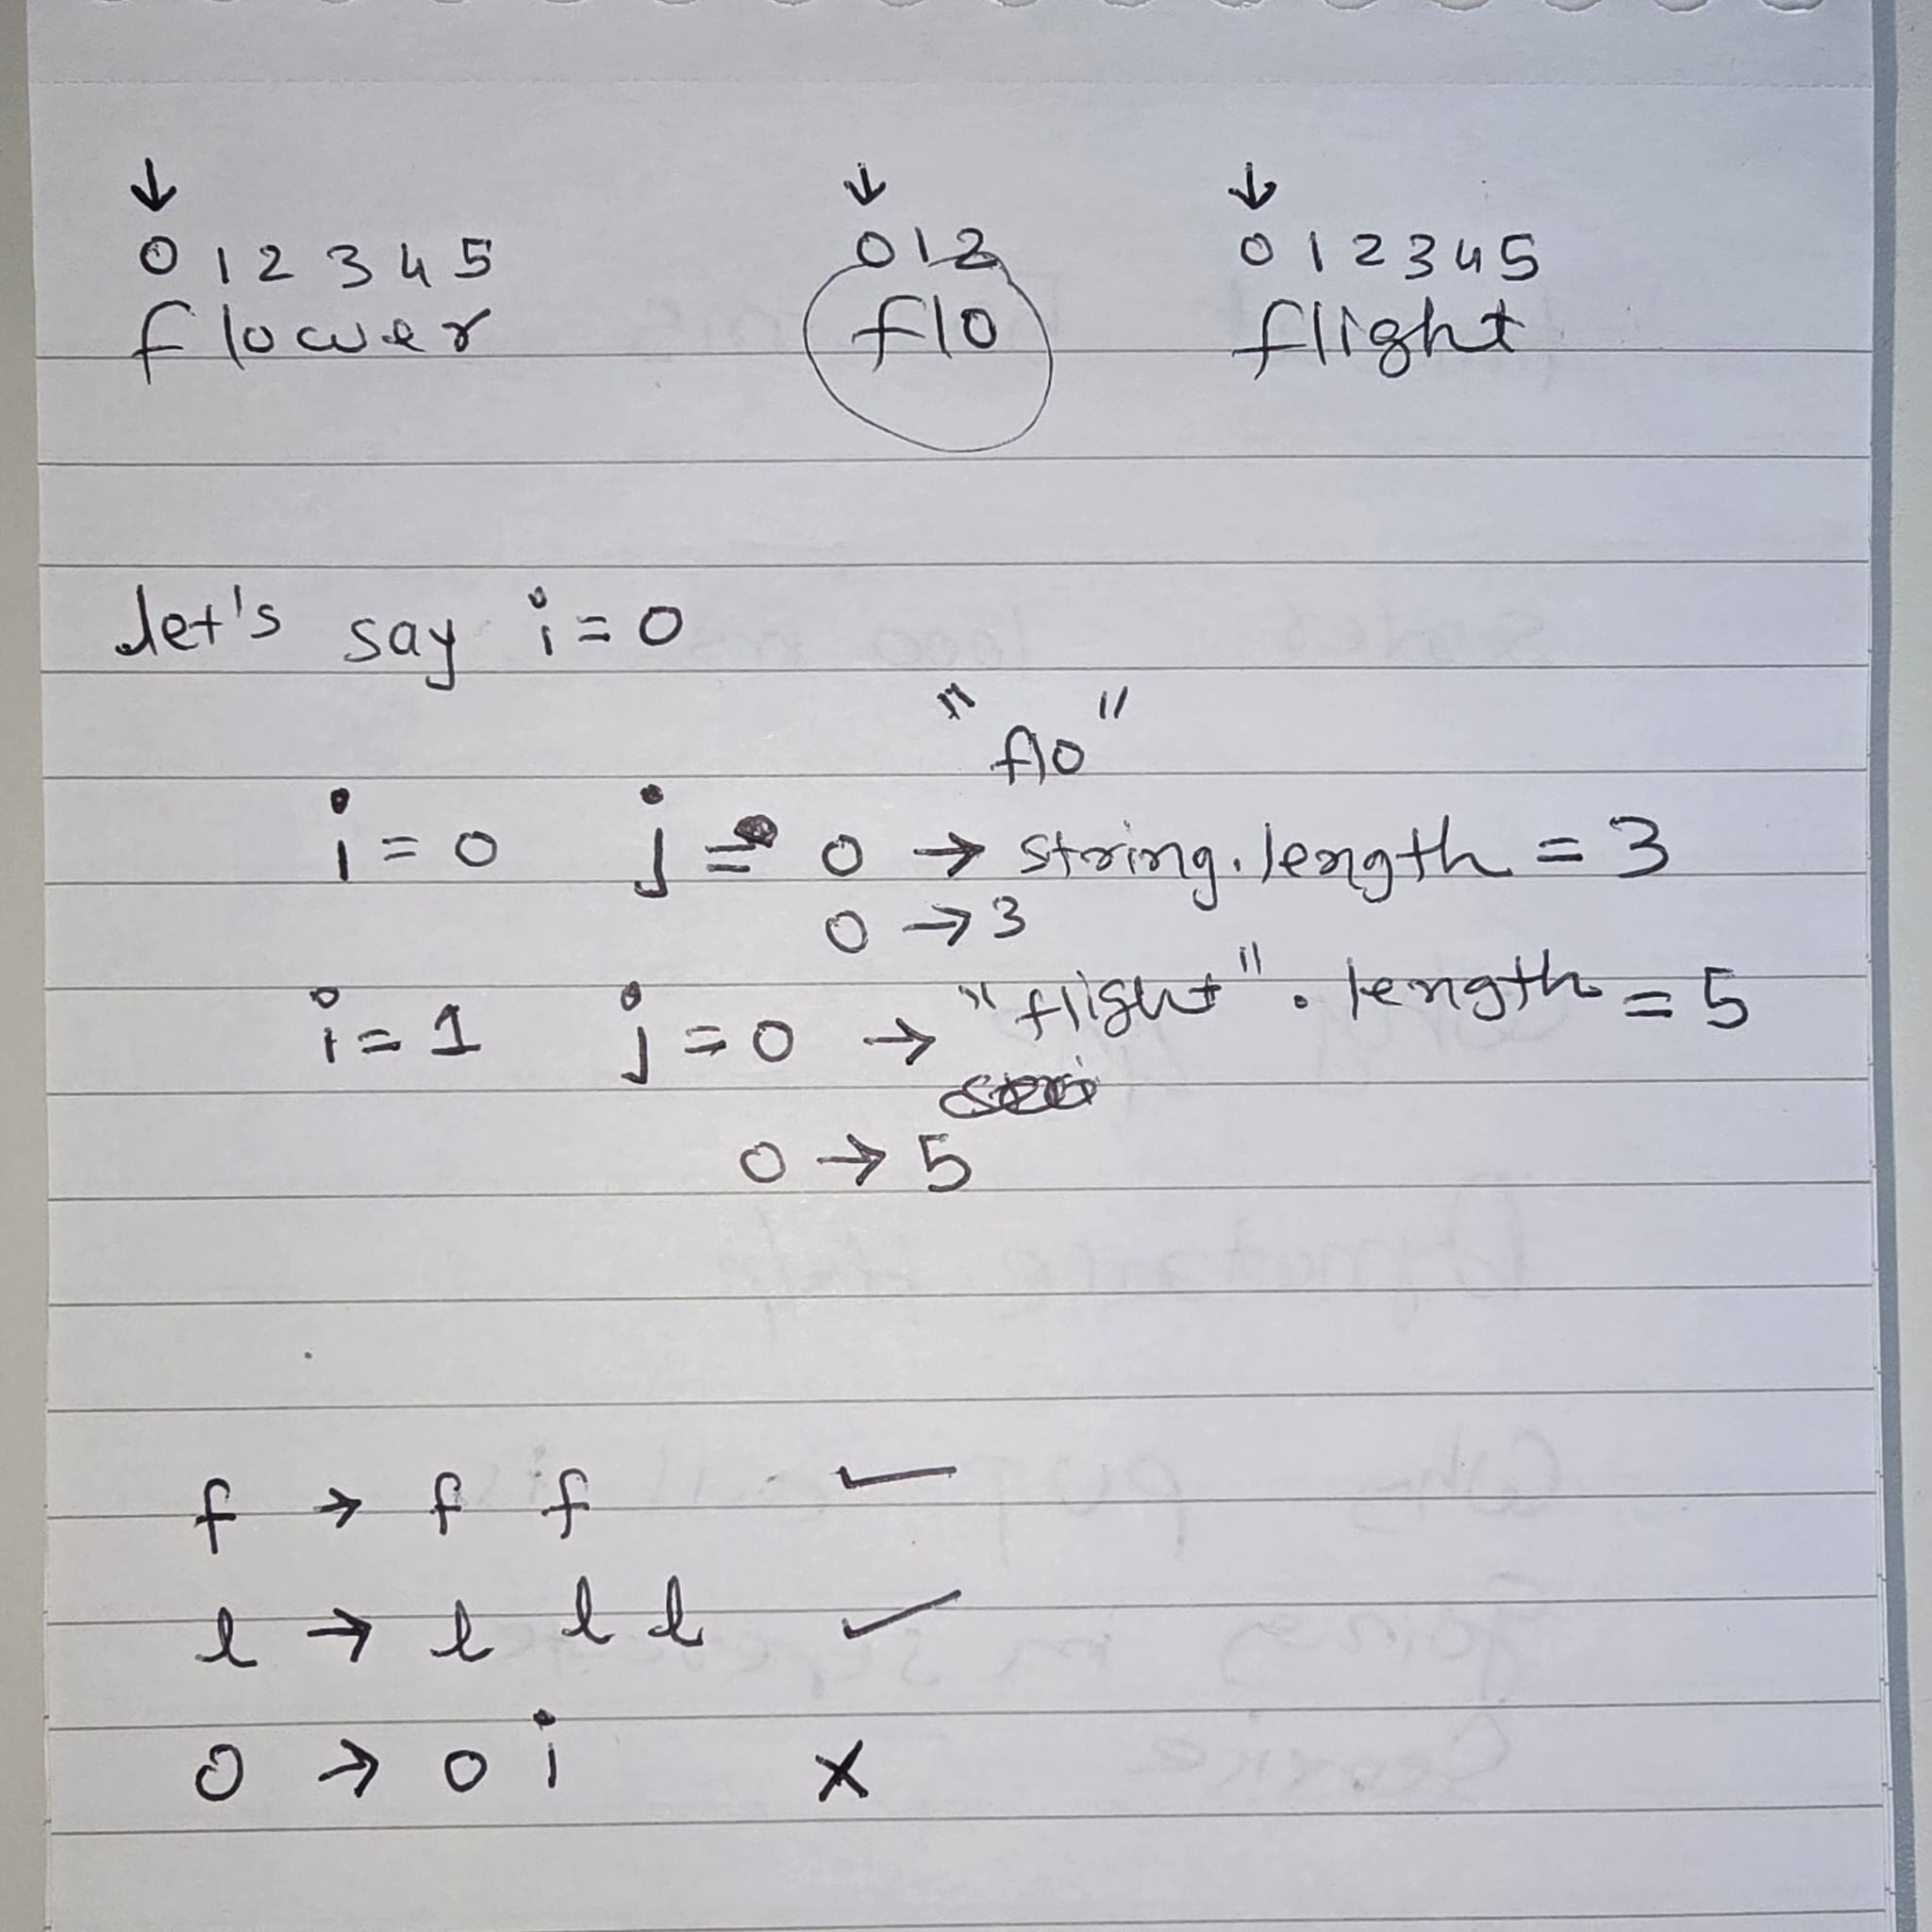 ↓ ↓ ↓
0 1 2 3 4 5 0 1 2 0 1 2 3 4 5
flower flo flight
let's say i = 0
"flo"
i = 0 j = 0 → string.length = 3
0 → 3
i = 1 j = 0 → "flight".length = 5
0 → 5
f → f f ✓
l → l l l ✓
o → o i x